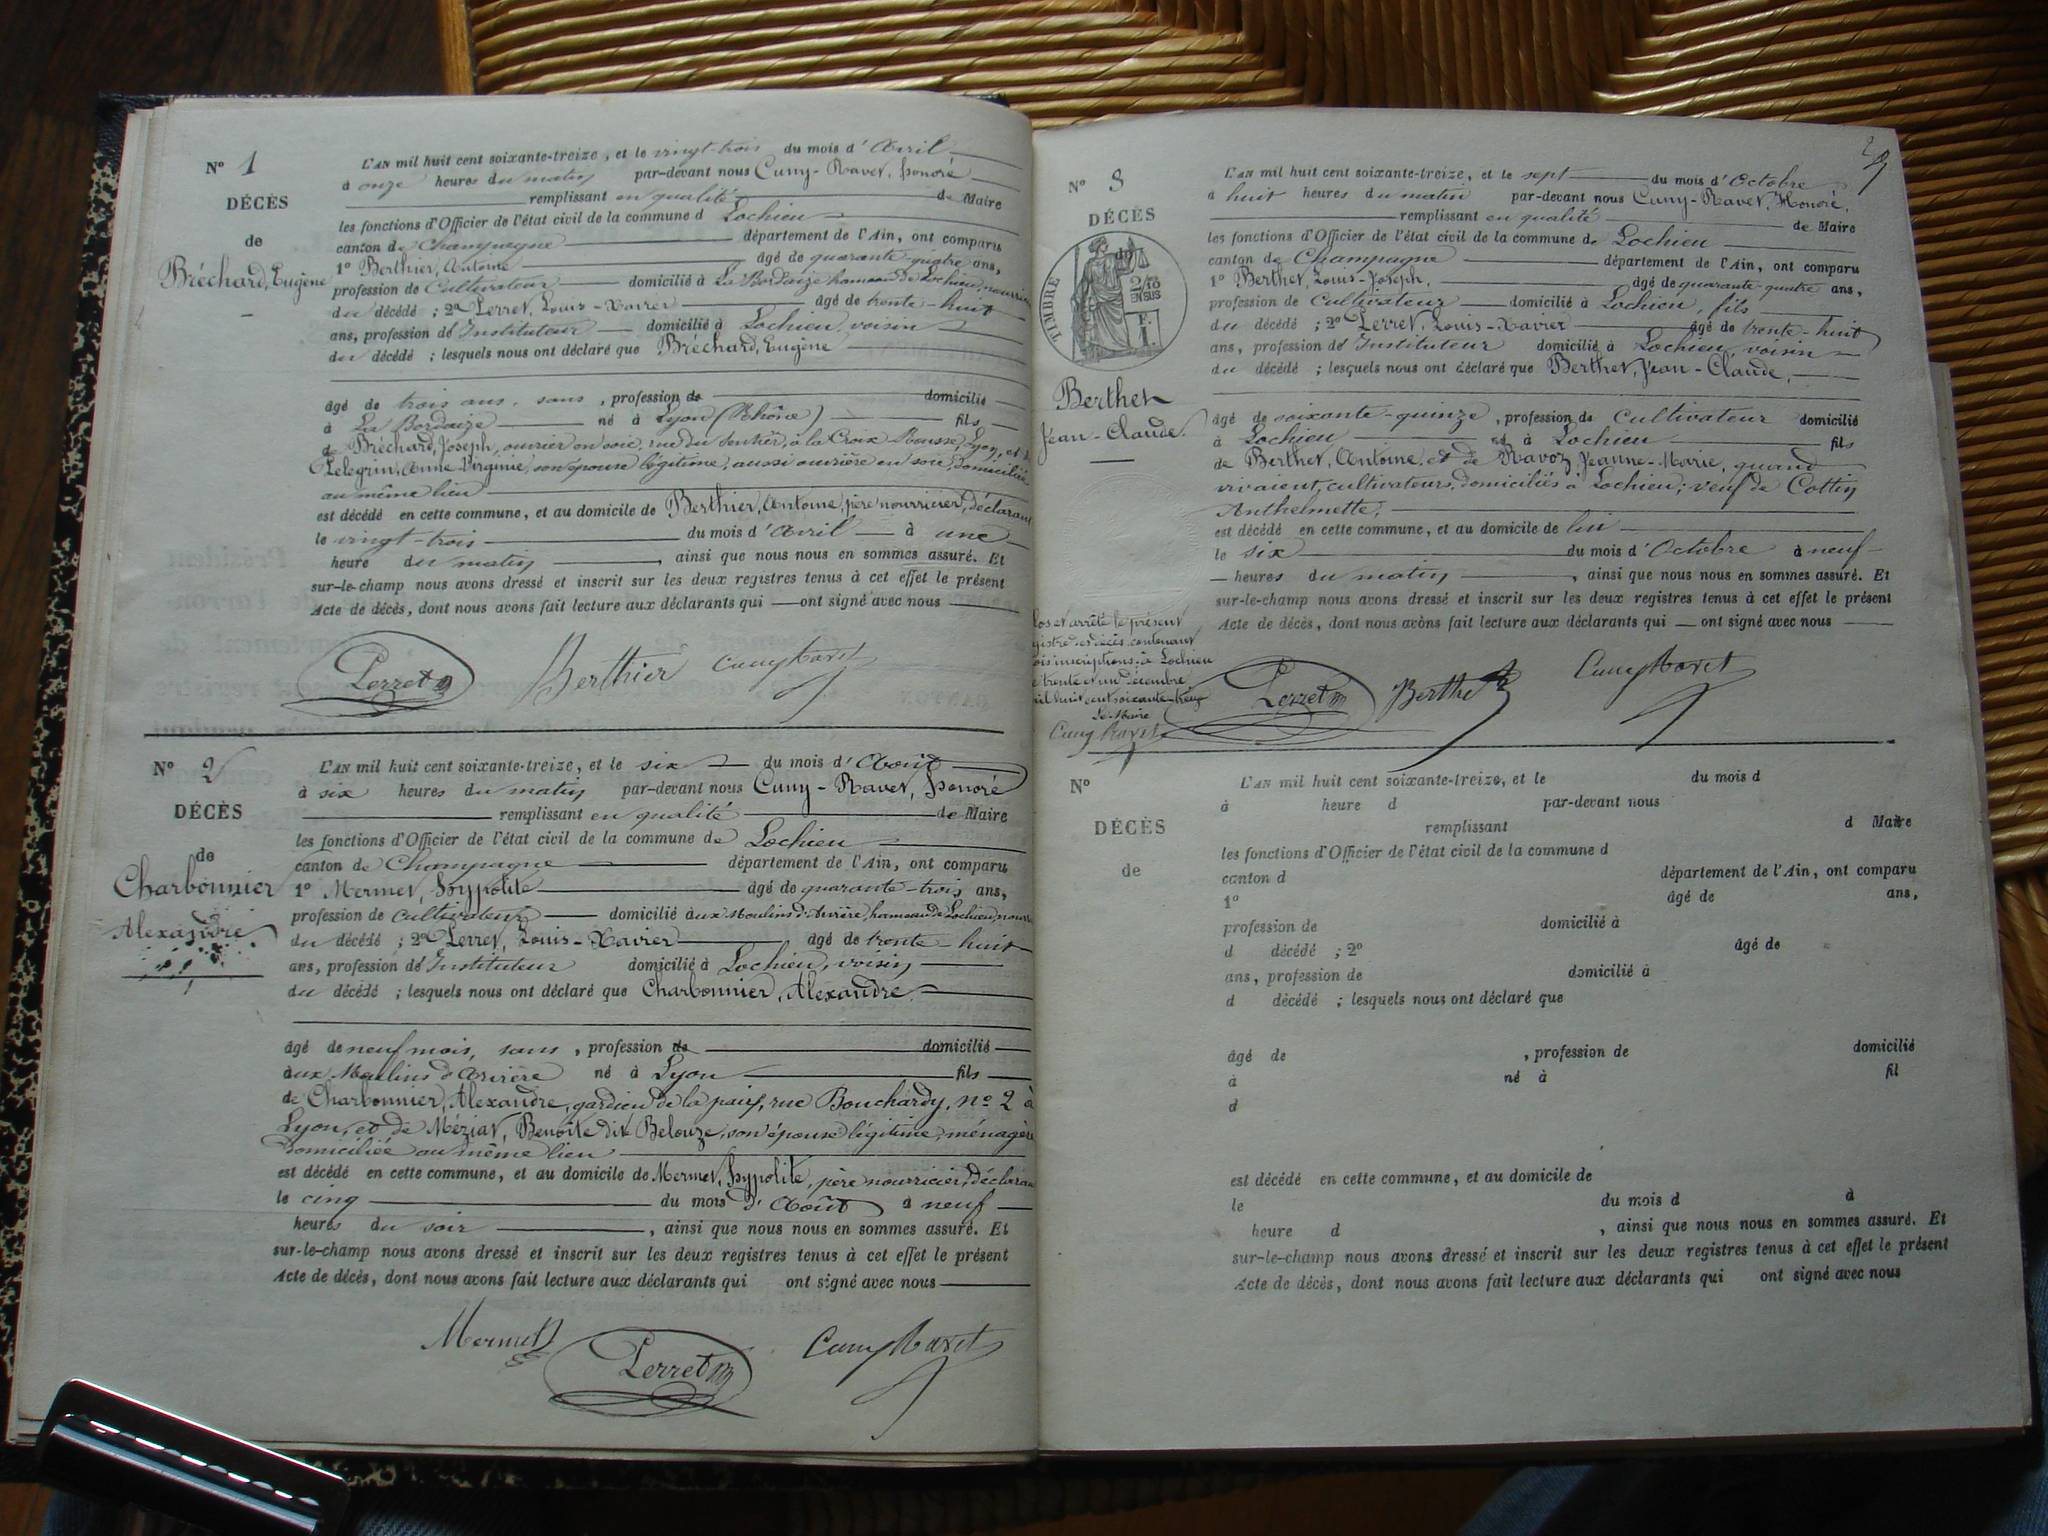 N° 1
DÉCÈS
de
Bréchard, Eugène
L'AN mil huit cent soixante-treize, et le vingt-trois du mois d'Avril
à onze heures du matin par-devant nous Cuny-Ravet, honoré
remplissant en qualité de Maire
les fonctions d'Officier de l'état civil de la commune d Lochieu
canton de Champagne département de l'Ain, ont comparu
1° Berthier, Antoine âgé de quarante-quatre ans,
profession de Cultivateur domicilié à La Bordaize hameau de Lochieu, nourricier
du décédé ; 2° Perret, Louis-Xavier âgé de trente-huit
ans, profession de Instituteur domicilié à Lochieu, voisin
du décédé ; lesquels nous ont déclaré que Bréchard, Eugène
âgé de trois ans, sans , profession de domicilié
à La Bordaize né à Lyon (Rhône) fils
de Bréchard, Joseph, ouvrier en soie, rue du Sentier, à la Croix Rousse, Lyon, et de
Pelegrin, Anne Virginie, son épouse légitime, aussi ouvrière en soie, domiciliée
au même lieu
est décédé en cette commune, et au domicile de Berthier, Antoine, père nourricier, déclarant
le vingt-trois du mois d'Avril à une
heure du matin , ainsi que nous nous en sommes assuré. Et
sur-le-champ nous avons dressé et inscrit sur les deux registres tenus à cet effet le présent
Acte de décès, dont nous avons fait lecture aux déclarants qui ont signé avec nous
Perret Berthier Cuny Ravet
N° 2
DÉCÈS
de
Charbonnier
Alexandre
L'AN mil huit cent soixante-treize, et le six du mois d'Août
à six heures du matin par-devant nous Cuny-Ravet, honoré
remplissant en qualité de Maire
les fonctions d'Officier de l'état civil de la commune de Lochieu
canton de Champagne département de l'Ain, ont comparu
1° Mermet, hyppolite âgé de quarante-trois ans,
profession de cultivateur domicilié aux Moulins d'Arvière, hameau de Lochieu,
du décédé ; 2° Perret, Louis-Xavier âgé de trente-huit
ans, profession de Instituteur domicilié à Lochieu, voisin
du décédé ; lesquels nous ont déclaré que Charbonnier, Alexandre
âgé de neuf mois, sans , profession de domicilié
aux Moulins d'Arvière né à Lyon fils
de Charbonnier, Alexandre, gardien de la paix, rue Bouchardy, n° 2 à
Lyon, et de Méziat, Benoîte dit Belouze, son épouse légitime, ménagère
domiciliée au même lieu
est décédé en cette commune, et au domicile de Mermet, hyppolite, père nourricier, déclarant
le cinq du mois d'Août à neuf
heures du soir , ainsi que nous nous en sommes assuré. Et
sur-le-champ nous avons dressé et inscrit sur les deux registres tenus à cet effet le présent
Acte de décès, dont nous avons fait lecture aux déclarants qui ont signé avec nous
Mermet Perret Cuny Ravet
N° 3
DÉCÈS
de
TIMBRE
2/10
EN SUS
Berthet
Jean-Claude.
L'AN mil huit cent soixante-treize, et le sept du mois d'Octobre
à huit heures du matin par-devant nous Cuny-Ravet, Honoré,
remplissant en qualité de Maire
les fonctions d'Officier de l'état civil de la commune de Lochieu
canton de Champagne département de l'Ain, ont comparu
1° Berthet, Louis-Joseph, âgé de quarante-quatre ans,
profession de Cultivateur domicilié à Lochieu, fils
du décédé ; 2° Perret, Louis-Xavier âgé de trente-huit
ans, profession de Instituteur domicilié à Lochieu, voisin
du décédé ; lesquels nous ont déclaré que Berthet, Jean-Claude,
âgé de soixante-quinze , profession de Cultivateur domicilié
à Lochieu né à Lochieu fils
de Berthet, Antoine, et de Ravoz, Jeanne-Marie, quand
vivaient, cultivateurs, domiciliés à Lochieu ; veuf de Cottin
Anthelmette,
est décédé en cette commune, et au domicile de lui
le six du mois d'Octobre à neuf
heures du matin , ainsi que nous nous en sommes assuré. Et
sur-le-champ nous avons dressé et inscrit sur les deux registres tenus à cet effet le présent
Acte de décès, dont nous avons fait lecture aux déclarants qui ont signé avec nous
los et arrêté le présent
gistre des décès contenant
ois inscriptions, à Lochieu
e trente et un décembre
il huit cent soixante-treize
Le Maire
Cuny Ravet
Perret Berthet Cuny Ravet
N°
DÉCÈS
de
L'AN mil huit cent soixante-treize, et le du mois d
à heure d par-devant nous
remplissant d Maire
les fonctions d'Officier de l'état civil de la commune d
canton d département de l'Ain, ont comparu
1° âgé de ans,
profession de domicilié à
d décédé ; 2° âgé de
ans, profession de domicilié à
d décédé ; lesquels nous ont déclaré que
âgé de , profession de domicilié
à né à fil
d
est décédé en cette commune, et au domicile de
le du mois d à
heure d , ainsi que nous nous en sommes assuré. Et
sur-le-champ nous avons dressé et inscrit sur les deux registres tenus à cet effet le présent
Acte de décès, dont nous avons fait lecture aux déclarants qui ont signé avec nous